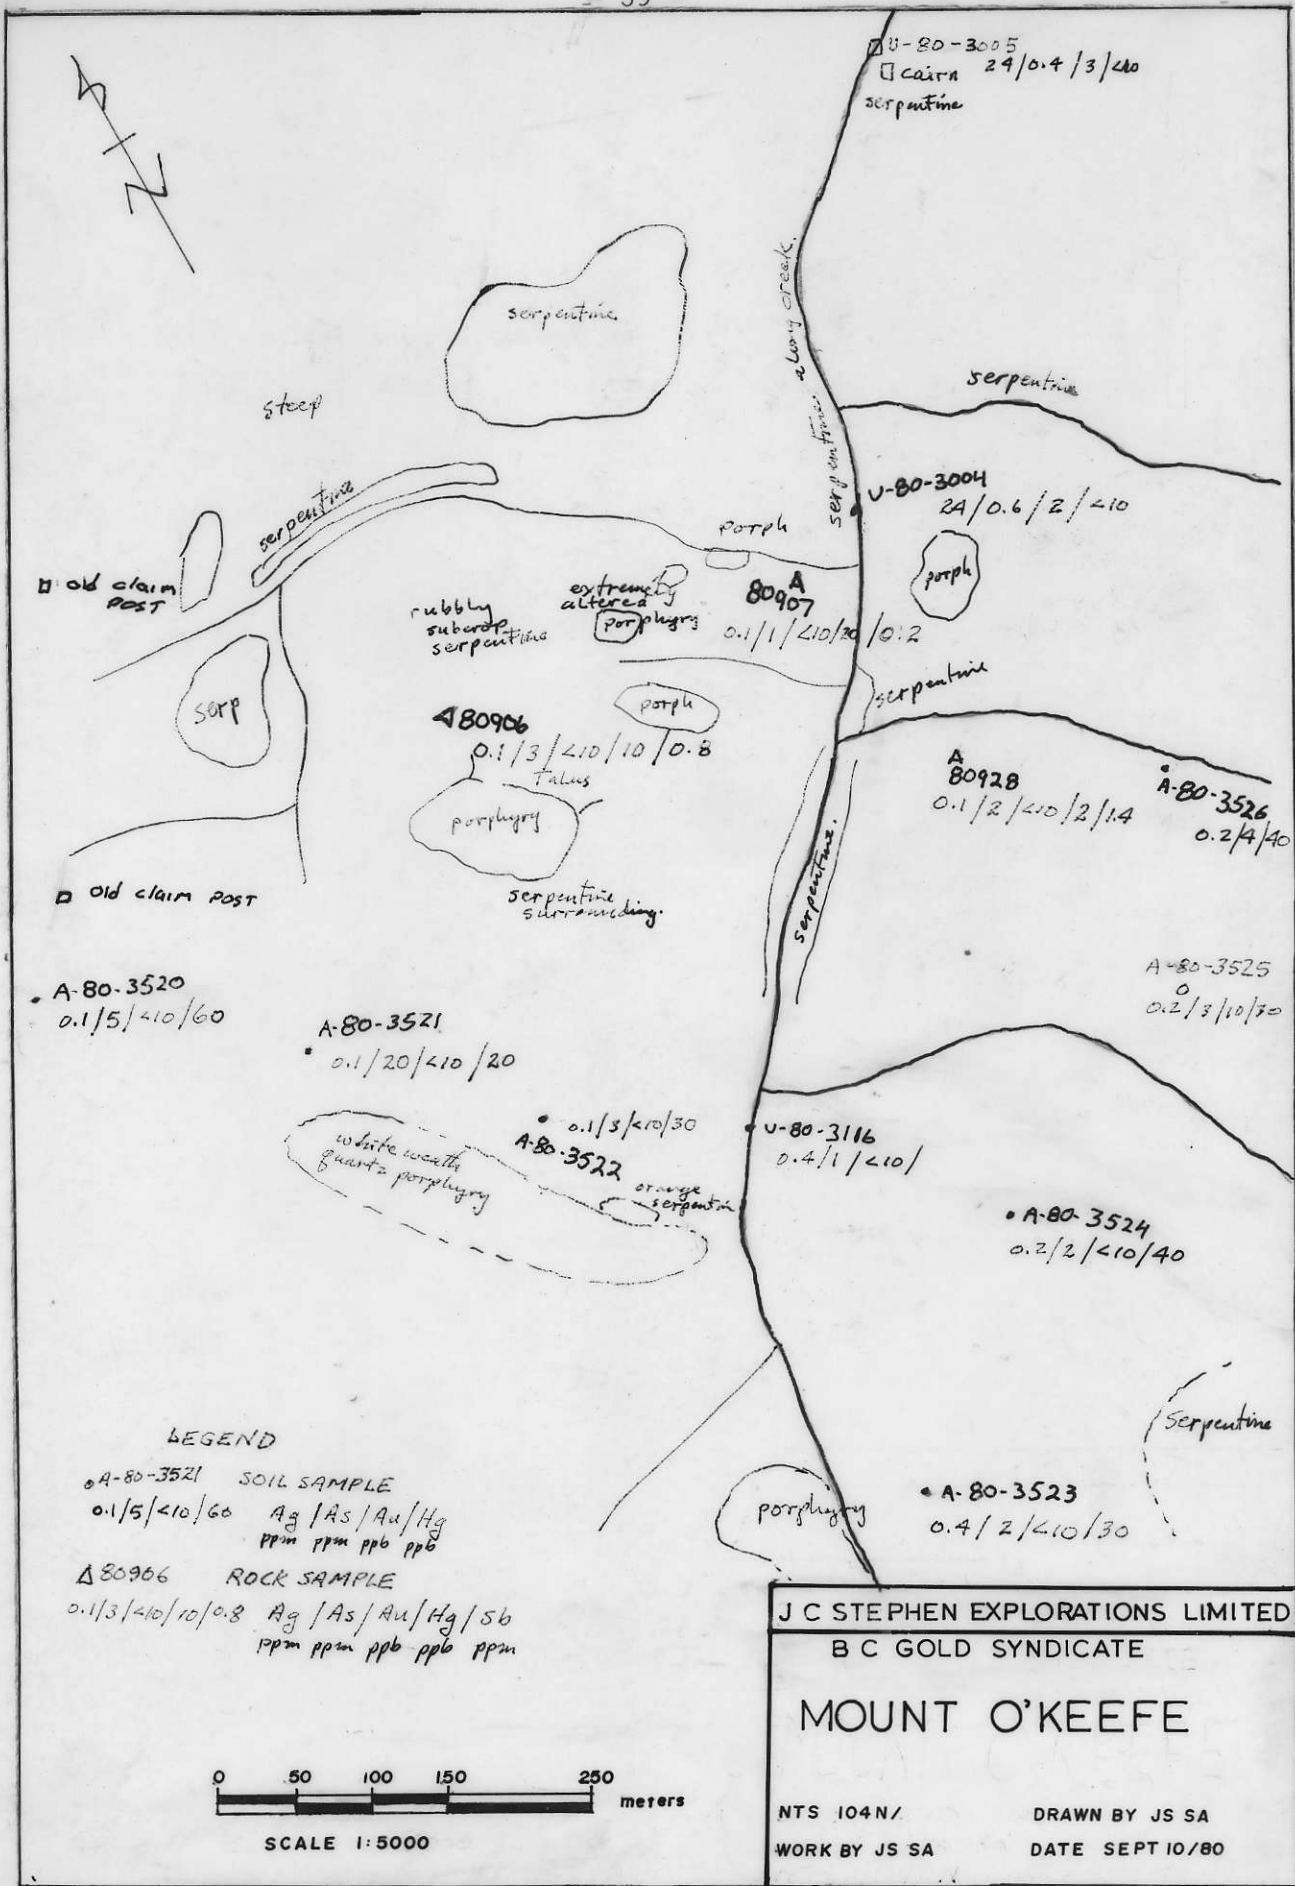 U-80-3005
cairn 24/0.4/3/<10
serpentine
N
serpentine
serpentine along creek.
steep
serpentine
serpentine
U-80-3004
24/0.6/2/<10
porph
porph
old claim
POST
extremely
altered
porphyry
A
80907
0.1/1/<10/20/0.2
rubbly
subcrop
serpentine
serp
80906
0.1/3/<10/10/0.8
Talus
porph
serpentine
porphyry
80928
0.1/2/<10/2/1.4
A-80-3526
0.2/4/40
Old claim POST
serpentine
surrounding.
serpentine.
A-80-3520
0.1/5/<10/60
A-80-3525
0.2/3/10/30
A-80-3521
0.1/20/<10/20
0.1/3/<10/30
A-80-3522
white weath
quartz porphyry
orange
serpentin
U-80-3116
0.4/1/<10/
A-80-3524
0.2/2/<10/40
Serpentine
porphyry
A-80-3523
0.4/2/<10/30
LEGEND
A-80-3521 SOIL SAMPLE
0.1/5/<10/60 Ag/As/Au/Hg
ppm ppm ppb ppb
80906 ROCK SAMPLE
0.1/3/<10/10/0.8 Ag/As/Au/Hg/Sb
ppm ppm ppb ppb ppm
0 50 100 150 250
meters
SCALE 1:5000
J C STEPHEN EXPLORATIONS LIMITED
B C GOLD SYNDICATE
MOUNT O'KEEFE
NTS 104N/ DRAWN BY JS SA
WORK BY JS SA DATE SEPT 10/80